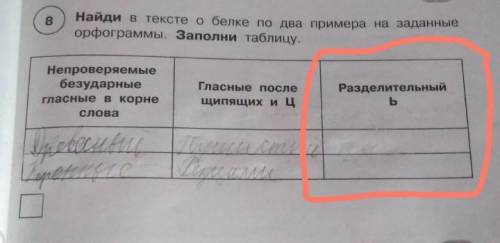 8 Найди в тексте о белке по два примера на заданные
орфограммы. Заполни таблицу.
Непроверяемые
безударные
гласные в корне
слова
Гласные после
щипящих и Ц
Разделительный
Ь